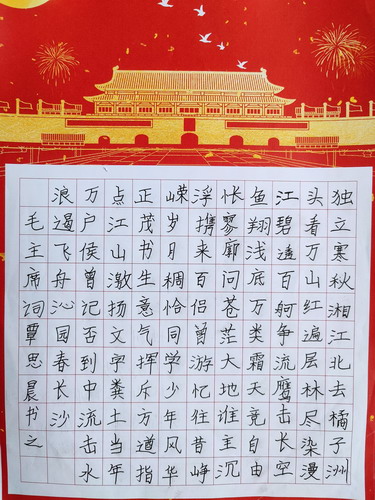 独立寒秋湘江北去橘子洲
头看万山红遍层林尽染漫
江碧透百舸争流鹰击长空
鱼翔浅底万类霜天竞自由
怅寥廓问苍茫大地谁主沉
浮携来百侣曾游忆往昔峥
嵘岁月稠恰同学少年风华
正茂书生意气挥斥方道指
点江山激扬文字粪土当年
万户侯曾记否到中流击水
浪遏飞舟沁园春长沙
毛主席词覃思晨书之